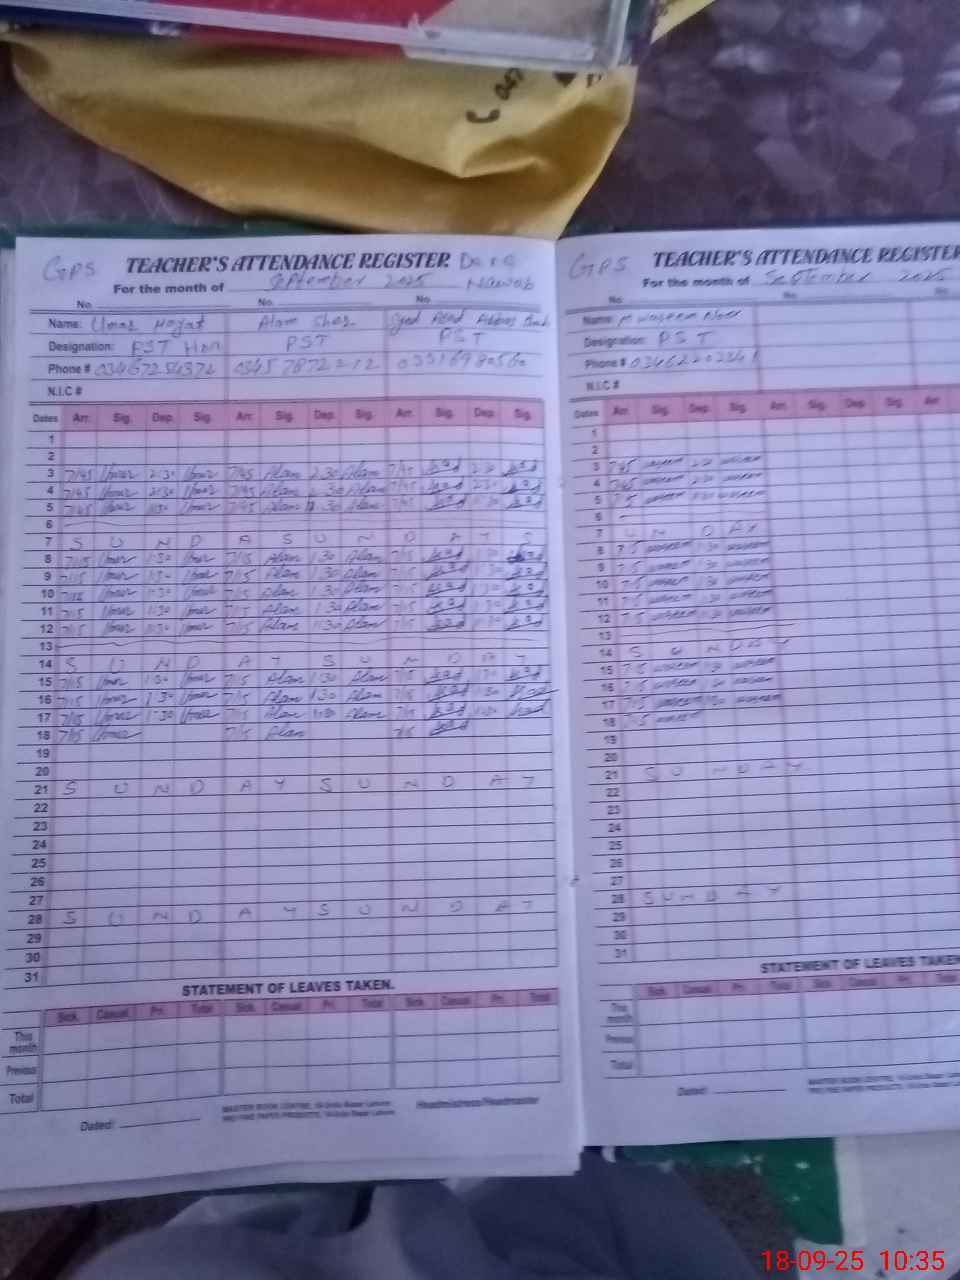 047
GPS TEACHER'S ATTENDANCE REGISTER Dara
For the month of September 2025 Nawab
No. No. No.
Name: Umar Hayat Alam Sher Syed Asad Abbas
Designation: PST PST PST
Phone # 03467254372 03457872212
N.I.C #
Dates Arr. Sig. Dep. Sig. Arr. Sig. Dep. Sig. Arr. Sig. Dep. Sig.
1
2
3 7/45 Umar 2:30 Umar 7/45 Alam 2:30 Alam 7/45 Asad 2:30 Asad
4 7/45 Umar 2:30 Umar 7/45 Alam 2:30 Alam 7/45 Asad 2:30 Asad
5 7/45 Umar 1:30 Umar 7/45 Alam 1:30 Alam 7/45 Asad 1:30 Asad
6
7 S U N D A S U N D A Y S
8 7/15 Umar 1:30 Umar 7/15 Alam 1:30 Alam 7/15 Asad 1:30 Asad
9 7/15 Umar 1:30 Umar 7/15 Alam 1:30 Alam 7/15 Asad 1:30 Asad
10 7/15 Umar 1:30 Umar 7/15 Alam 1:30 Alam 7/15 Asad 1:30 Asad
11 7/15 Umar 1:30 Umar 7/15 Alam 1:30 Alam 7/15 Asad 1:30 Asad
12 7/15 Umar 1:30 Umar 7/15 Alam 1:30 Alam 7/15 Asad 1:30 Asad
13
14 S U N D A Y S U N D A Y
15 7/15 Umar 1:30 Umar 7/15 Alam 1:30 Alam 7/15 Asad 1:30 Asad
16 7/15 Umar 1:30 Umar 7/15 Alam 1:30 Alam 7/15 Asad 1:30 Asad
17 7/15 Umar 1:30 Umar 7/15 Alam 1:30 Alam 7/15 Asad 1:30 Asad
18 7/15 Umar 7/15 Alam 7/15 Asad
19
20
21 S U N D A Y S U N D A Y
22
23
24
25
26
27
28 S U N D A Y S U N D A Y
29
30
31
STATEMENT OF LEAVES TAKEN.
Sick. Casual. Pri. Total Sick. Casual. Pri. Total Sick. Casual. Pri. Total
This month
Previous
Total
Dated: Headmistress/Headmaster
MASTER BOOK CENTRE,
GPS TEACHER'S ATTENDANCE REGISTER
For the month of September 2025
No. No. No.
Name: M Waseem
Designation: PST
Phone #
N.I.C #
Dates Arr. Sig. Dep. Sig. Arr. Sig. Dep. Sig. Arr
1
2
3 7/45 waseem 2:30 waseem
4 7/45 waseem 2:30 waseem
5 7/45 waseem 1:30 waseem
6
7 U N D A Y
8 7/15 waseem 1:30 waseem
9 7/15 waseem 1:30 waseem
10 7/15 waseem 1:30 waseem
11 7/15 waseem 1:30 waseem
12 7/15 waseem 1:30 waseem
13
14 S U N D A Y
15 7/15 waseem 1:30 waseem
16 7/15 waseem 1:30 waseem
17 7/15 waseem 1:30 waseem
18 7/15 waseem
19
20
21 S U N D A Y
22
23
24
25
26
27
28 S U N D A Y
29
30
31
STATEMENT OF LEAVES TAKEN
Sick. Casual. Pri. Total Sick. Casual. Pri. Total
This month
Previous
Total
Dated:
MASTER BOOK CENTRE,
18-09-25 10:35